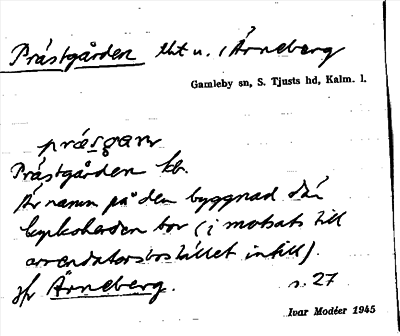 Prästgården tht u. i Ärneberg
Gamleby sn, S. Tjusts hd, Kalm. l.
præsgaɳ
Prästgården kb.
Är namn på den byggnad där
kyrkoherden bor (i motsats till
arrendatorsbostället intill).
jfr Ärneberg. s. 27
Ivar Modéer 1945